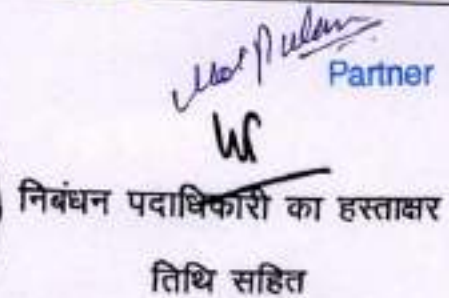 Partner
निबंधन पदाधिकारी का हस्ताक्षर
तिथि सहित